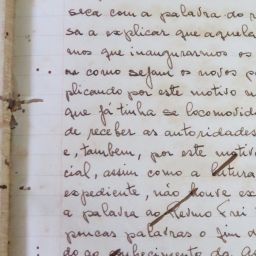 seca com a palavra do r
sa a explicar que aquela
mos que inaugurarmos os
como sejam os novos p
plicando por este motivo n
que já tinha se locomovido
de receber as autoridades
e, tambem, por este motivo
cial, assim como a leitura
expediente, não houve ex
a palavra ao Revmo Frei
poucas palavras o fim d
do ao conhecimento da As